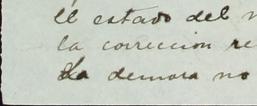 el estado del
la correccion re
La demora no